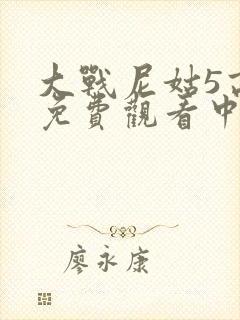 大戰尼姑5高
免費觀看中
廖永康